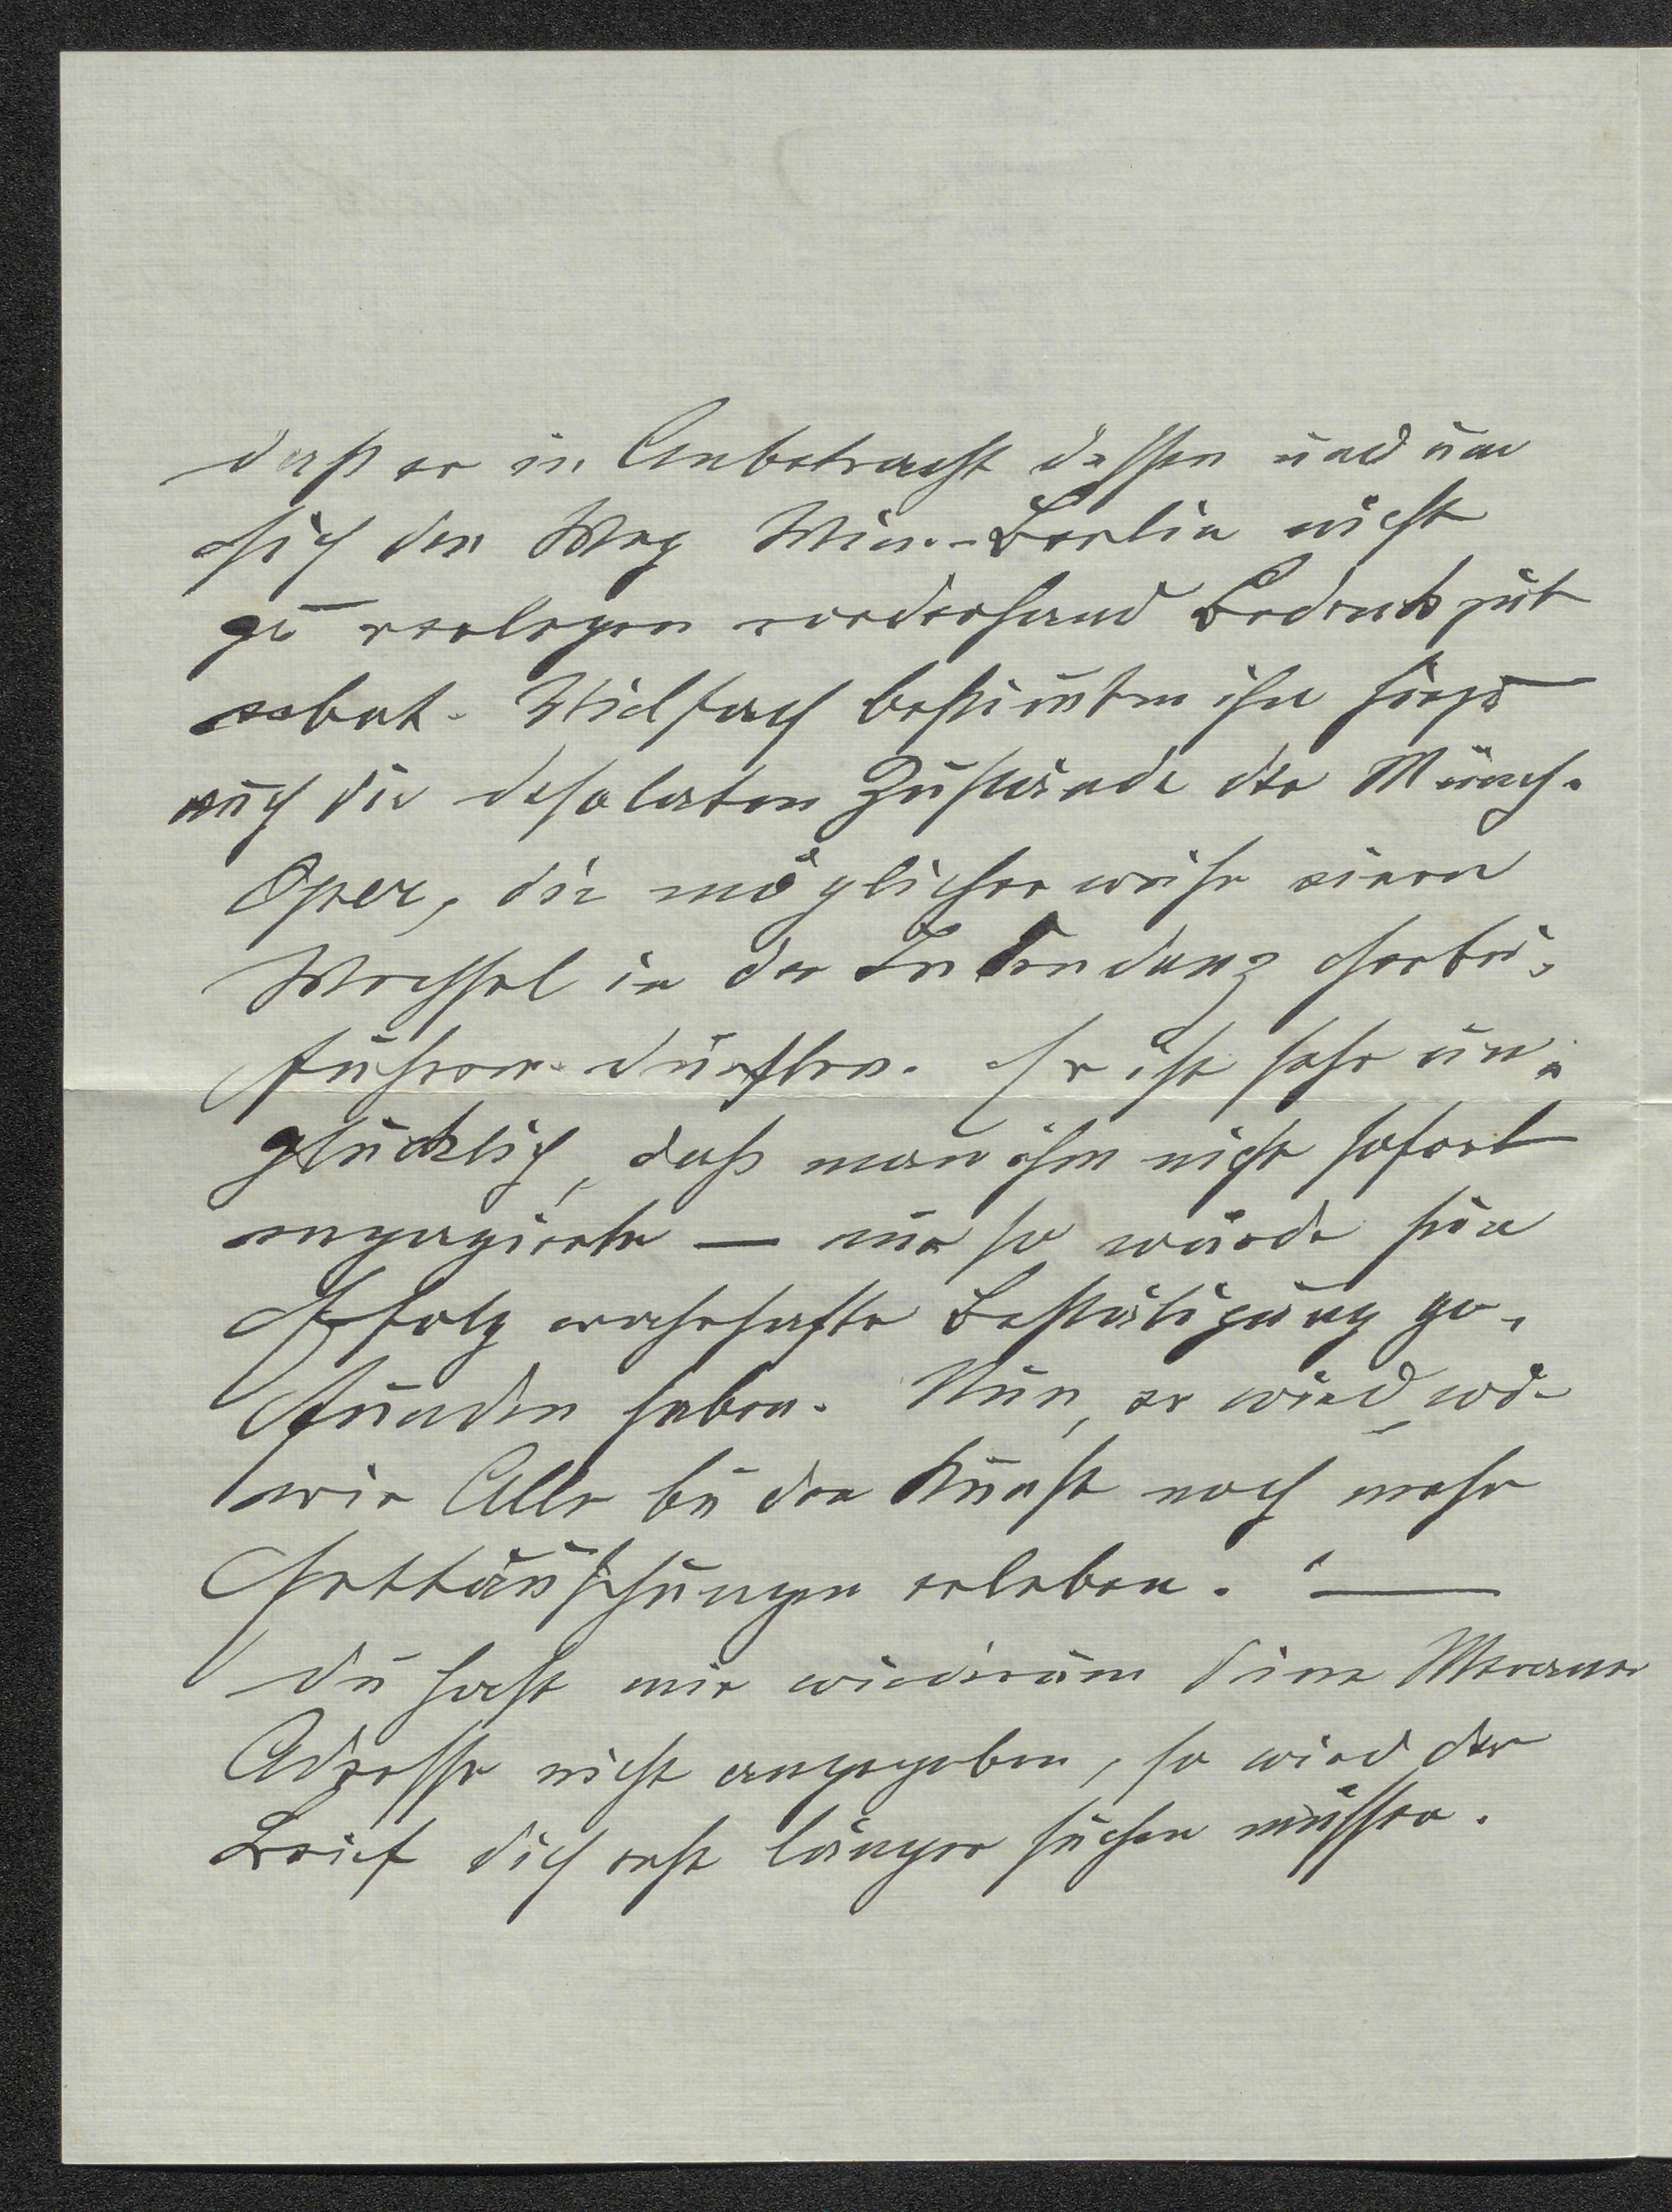 daß er in Anbetracht dessen und um
sich den Weg Wien-Berlin nicht
zu verlegen vorderhand Bedenkzeit
erbat. Vielfach bestimmten ihn hiezu
auch die desolaten Zustände der Münch.
Oper, die möglicherweise einen
Wechsel in der Intendanz herbei-
führen dürften. Er ist sehr un-
glücklich, daß man ihm nicht sofort
engagierte — nur so würde sein
Erfolg wahrhafte Bestätigung ge-
funden haben. Nun, er wird, wie
wir Alle bei der Kunst noch mehr
Enttäuschungen erleben. —
Du hast mir wiederum deine Meraner
Adresse nicht angegeben, so wird der
Brief dich erst länger suchen müssen.